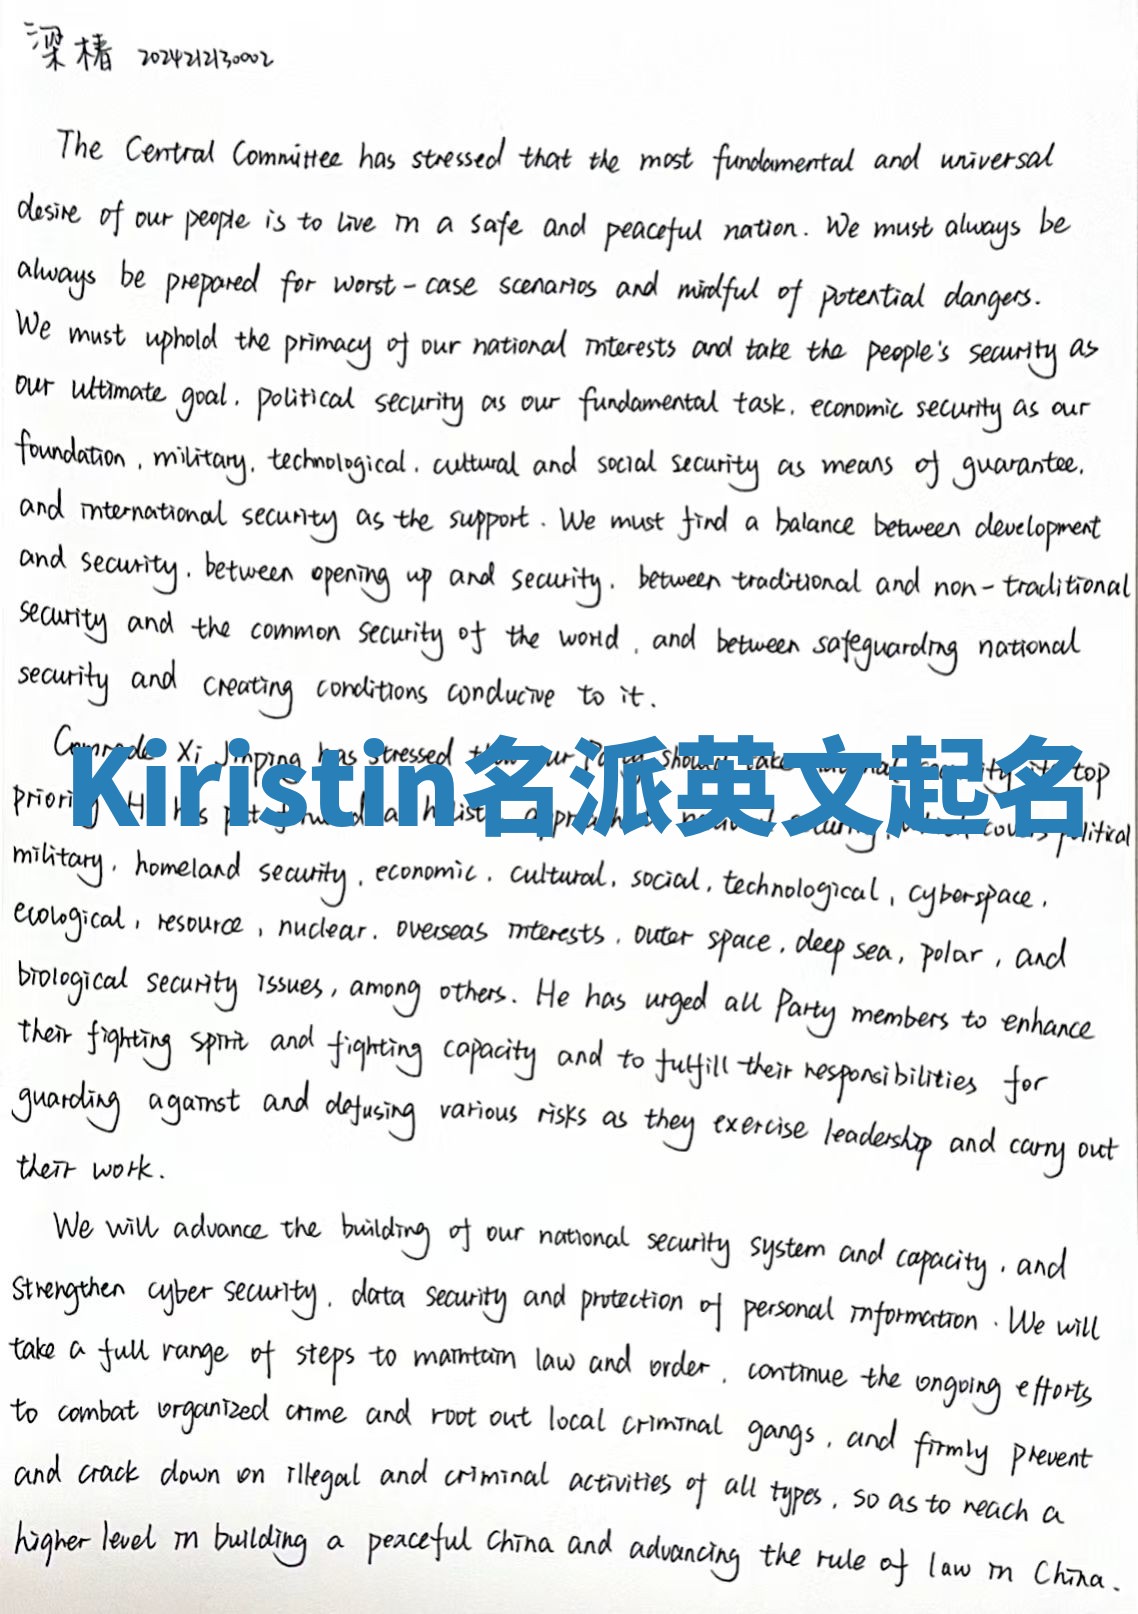 梁椿 2024212130002
The Central Committee has stressed that the most fundamental and universal
desire of our people is to live in a safe and peaceful nation. We must always be
always be prepared for worst-case scenarios and mindful of potential dangers.
We must uphold the primacy of our national interests and take the people's security as
our ultimate goal, political security as our fundamental task, economic security as our
foundation, military, technological, cultural and social security as means of guarantee,
and international security as the support. We must find a balance between development
and security, between opening up and security, between traditional and non-traditional
security and the common security of the world, and between safeguarding national
security and creating conditions conducive to it.
Comrade Xi Jinping has stressed ur Party should take top
Kiristin名派英文起名
political
military, homeland security, economic, cultural, social, technological, cyberspace,
ecological, resource, nuclear, overseas interests, outer space, deep sea, polar, and
biological security issues, among others. He has urged all Party members to enhance
their fighting spirit and fighting capacity and to fulfill their responsibilities for
guarding against and defusing various risks as they exercise leadership and carry out
their work.
We will advance the building of our national security system and capacity, and
strengthen cyber security, data security and protection of personal information. We will
take a full range of steps to maintain law and order, continue the ongoing efforts
to combat organized crime and root out local criminal gangs, and firmly prevent
and crack down on illegal and criminal activities of all types, so as to reach a
higher level in building a peaceful China and advancing the rule of law in China.